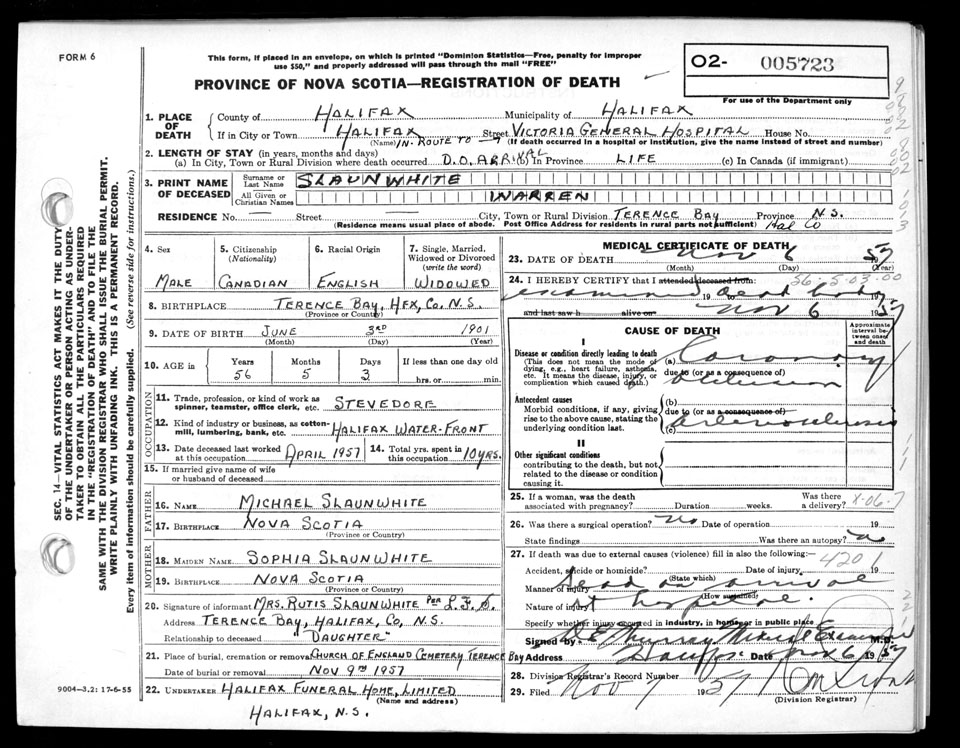 FORM 6
This form, if placed in an envelope, on which is printed "Dominion Statistics—Free, penalty for improper
use $50," and properly addressed will pass through the mail "FREE"
PROVINCE OF NOVA SCOTIA—REGISTRATION OF DEATH
O2- 005723
For use of the Department only
1. PLACE OF DEATH
County of HALIFAX Municipality of HALIFAX
If in City or Town HALIFAX Street VICTORIA GENERAL HOSPITAL House No.
(Name) IN-ROUTE TO → (If death occurred in a hospital or institution, give the name instead of street and number)
2. LENGTH OF STAY (in years, months and days)
(a) In City, Town or Rural Division where death occurred D.O. ARRIVAL (b) In Province LIFE (c) In Canada (if immigrant)
3. PRINT NAME OF DECEASED
Surname or Last Name SLAUNWHITE
All Given or Christian Names WARREN
RESIDENCE No. — Street — City, Town or Rural Division TERENCE BAY Province N.S.
(Residence means usual place of abode. Post Office Address for residents in rural parts not sufficient) Hal Co
4. Sex MALE
5. Citizenship (Nationality) CANADIAN
6. Racial Origin ENGLISH
7. Single, Married, Widowed or Divorced (write the word) WIDOWED
8. BIRTHPLACE TERENCE BAY, HFX, CO. N.S.
(Province or Country)
9. DATE OF BIRTH JUNE 3RD 1901
(Month) (Day) (Year)
10. AGE IN Years 56 Months 5 Days 3 If less than one day old hrs. or min.
OCCUPATION
11. Trade, profession, or kind of work as spinner, teamster, office clerk, etc. STEVEDORE
12. Kind of industry or business, as cotton-mill, lumbering, bank, etc. HALIFAX WATER-FRONT
13. Date deceased last worked at this occupation APRIL 1957 14. Total yrs. spent in this occupation 10 YRS.
15. If married give name of wife or husband of deceased
FATHER
16. NAME MICHAEL SLAUNWHITE
17. BIRTHPLACE NOVA SCOTIA
(Province or Country)
MOTHER
18. MAIDEN NAME SOPHIA SLAUNWHITE
19. BIRTHPLACE NOVA SCOTIA
(Province or Country)
20. Signature of informant MRS. RUTIS SLAUNWHITE PER
Address TERENCE BAY, HALIFAX, CO, N.S.
Relationship to deceased "DAUGHTER"
21. Place of burial, cremation or removal CHURCH OF ENGLAND CEMETERY TERENCE BAY
Date of burial or removal NOV 9TH 1957
22. UNDERTAKER HALIFAX FUNERAL HOME, LIMITED
(Name and address)
HALIFAX, N.S.
MEDICAL CERTIFICATE OF DEATH
23. DATE OF DEATH Nov 6 57
(Month) (Day) (Year)
24. I HEREBY CERTIFY that I attended deceased from: 56-5-03-00
examined 19 to dead body 19
and last saw h alive on Nov 6 1957
CAUSE OF DEATH
Approximate interval between onset and death
I
Disease or condition directly leading to death
(This does not mean the mode of dying, e.g., heart failure, asthenia, etc. It means the disease, injury, or complication which caused death.)
(a) Coronary
due to (or as a consequence of)
occlusion
Antecedent causes
Morbid conditions, if any, giving rise to the above cause, stating the underlying condition last.
(b)
due to (or as a consequence of)
(c) arteriosclerosis
II
Other significant conditions
contributing to the death, but not related to the disease or condition causing it.
25. If a woman, was the death associated with pregnancy? Duration weeks. Was there a delivery? X-06-7
26. Was there a surgical operation? no Date of operation 19
State findings Was there an autopsy? no
27. If death was due to external causes (violence) fill in also the following:— 4201
Accident, suicide or homicide? Date of injury 19
(State which)
Manner of injury dead on arrival
(How sustained)
Nature of injury at hospital.
Specify whether injury occurred in industry, in home, or in public place
Signed by Murray Medical Examiner M.D.
Address Halifax Date Nov 6 1957
28. Division Registrar's Record Number
29. Filed Nov 7 1957
(Division Registrar)
SEC. 14—VITAL STATISTICS ACT MAKES IT THE DUTY
OF THE UNDERTAKER OR PERSON ACTING AS UNDER-
TAKER TO OBTAIN ALL THE PARTICULARS REQUIRED
IN THE "REGISTRATION OF DEATH" AND TO FILE THE
SAME WITH THE DIVISION REGISTRAR WHO SHALL ISSUE THE BURIAL PERMIT.
WRITE PLAINLY WITH UNFADING INK. THIS IS A PERMANENT RECORD.
Every item of information should be carefully supplied. (See reverse side for instructions.)
9004—3.2: 17-6-55